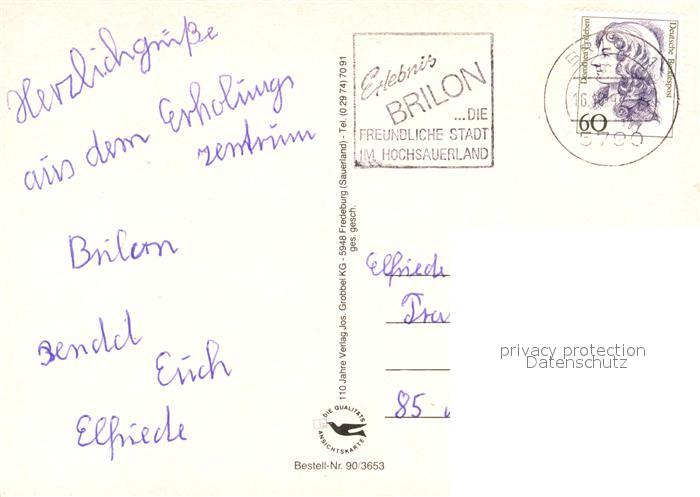 Herzlichgrüße
aus dem Erholungs
zentrum
Brilon
sendet
Euch
Elfriede
110 Jahre Verlag Jos. Grobbel KG - 5948 Fredeburg (Sauerland) - Tel. (0 29 74) 70 91
ges. gesch.
DIE QUALITÄTS
ANSICHTSKARTE
Bestell-Nr. 90/3653
Erlebnis
BRILON
...DIE
FREUNDLICHE STADT
IM HOCHSAUERLAND
Dorothea Erxleben
Deutsche Bundespost
60
5790
Elfriede
85
privacy protection
Datenschutz